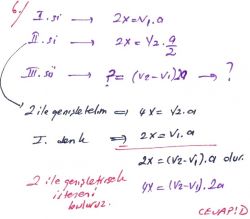 6./
I. si → 2x = V₁.a
II. si → 2x = V₂.a/2
III. sü → ? = (V₂-V₁)2a → ?
2 ile genişletelim → 4x = V₂.a
I. denk ⇒ 2x = V₁.a
2x = (V₂-V₁).a olur.
2 ile genişletirsek 4x = (V₂-V₁).2a
isteneni buluruz.
CEVAP: D